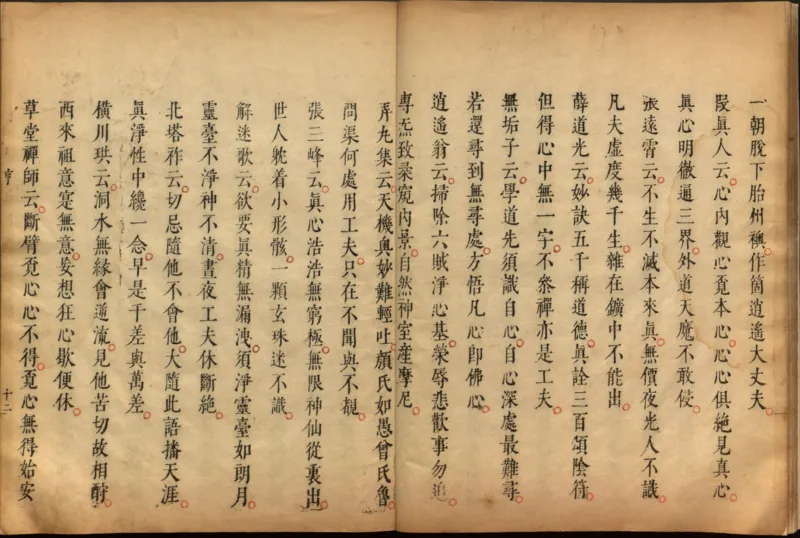 一朝脫下胎州襖作箇逍遙大丈夫
段真人云心內觀心覓本心心心俱絕見真心
眞心明徹通三界外道天魔不敢侵
張遠霄云不生不滅本來眞無價夜光人不識
凡夫虛度幾千生雜在鑛中不能出
薛道光云妙訣五千稱道德眞詮三百頌陰符
但得心中無一字不參禪亦是工夫
無垢子云學道先須識自心自心深處最難尋
若還尋到無尋處方悟凡心卽佛心
逍遙翁云掃除六賊淨心基榮辱悲歡事勿追
專炁致柔窺內景自然神室產摩尼
弄丸集云天機奧妙難輕吐顏氏如愚曾氏魯
問渠何處用工夫只在不聞與不覩
張三峰云眞心浩浩無窮極無限神仙從裏出
世人躭着小形骸一顆玄珠迷不識
解迷歌云欲要眞精無漏洩須淨靈臺如朗月
靈臺不淨神不清晝夜工夫休斷絶
北塔祚云切忌隨他不會他大隨此語播天涯
眞淨性中纔一念早是千差與萬差
橫川珙云洞水無緣會逆流見他苦切故相酧
西來祖意寔無意妄想狂心歇便休
草堂禪師云斷臂覓心心不得覓心無得始安
亨
十二